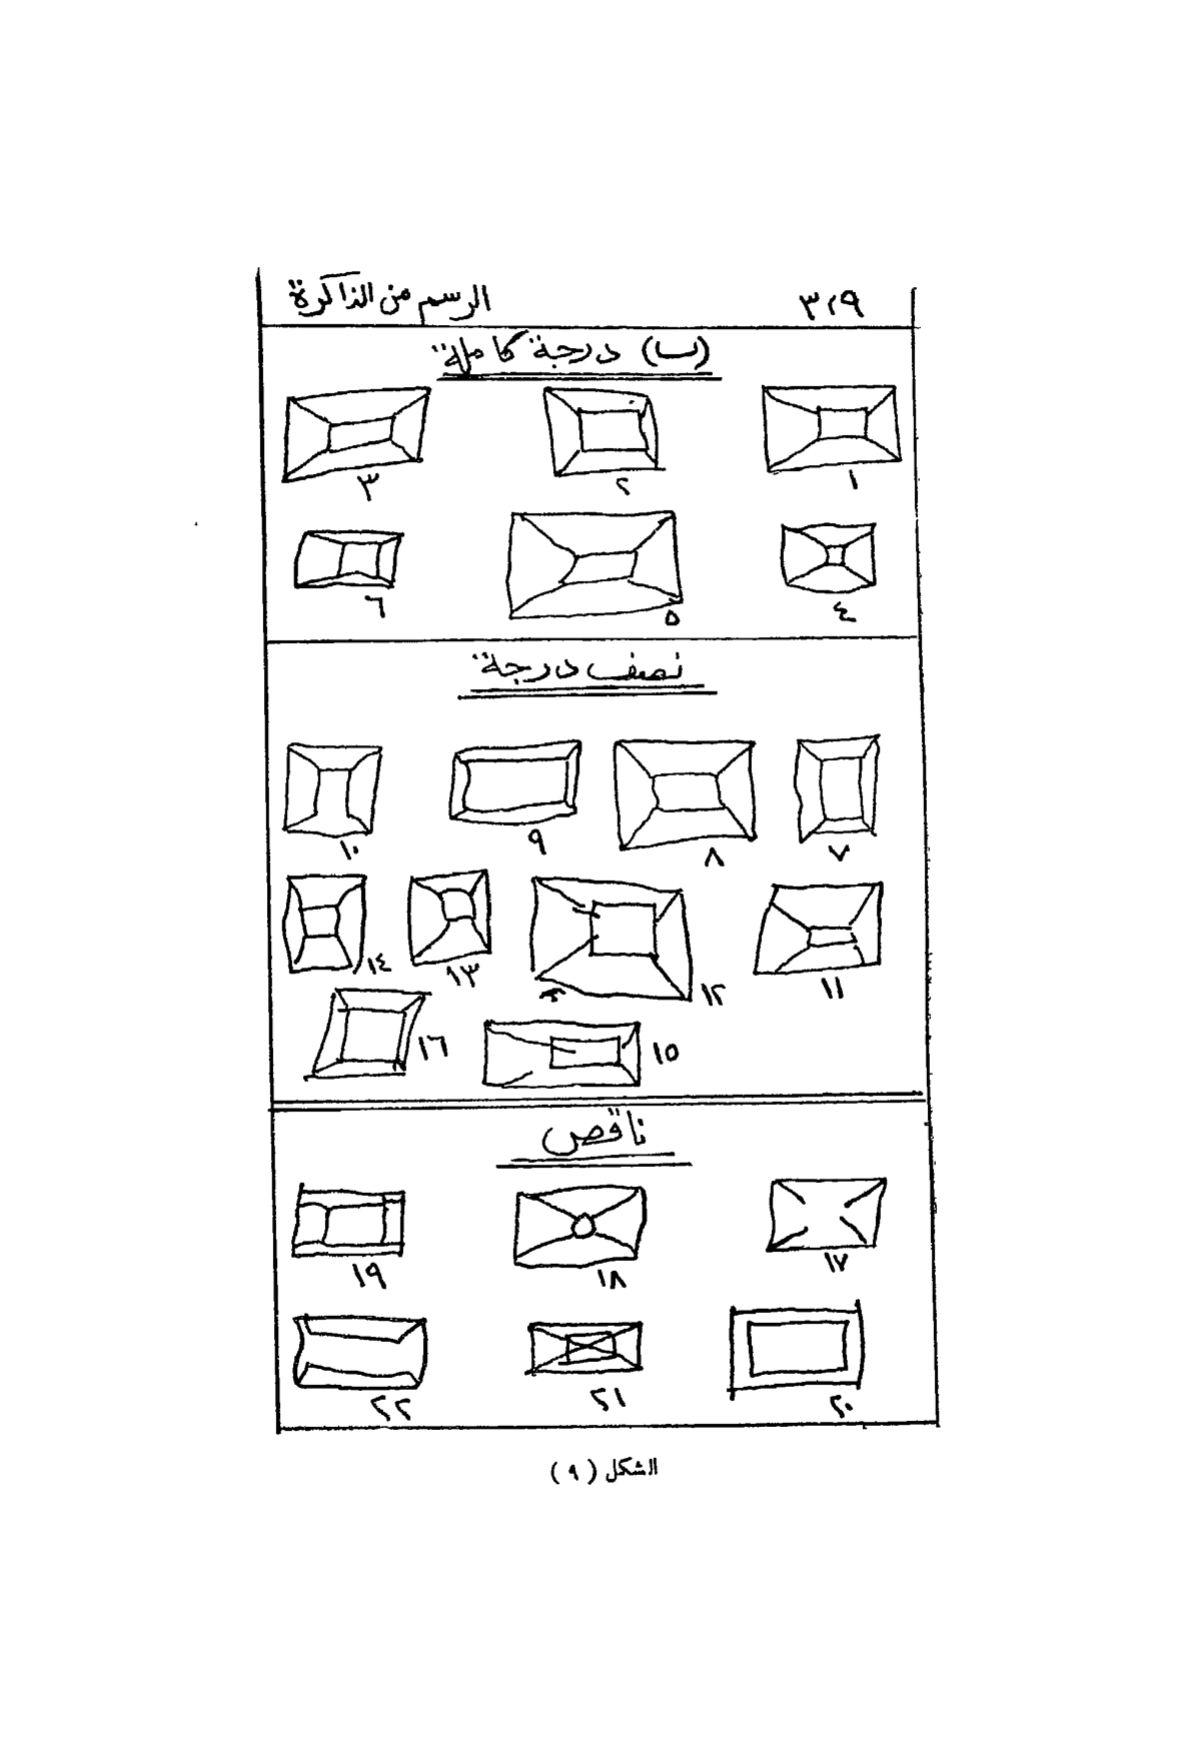 ٣،٩ الرسم من الذاكرة
(ب) درجة كاملة
١ ٢ ٣
٤ ٥ ٦
نصف درجة
٧ ٨ ٩ ١٠
١١ ١٢ ١٣ ١٤
١٥ ١٦
ناقص
١٧ ١٨ ١٩
٢٠ ٢١ ٢٢
الشكل (٩)